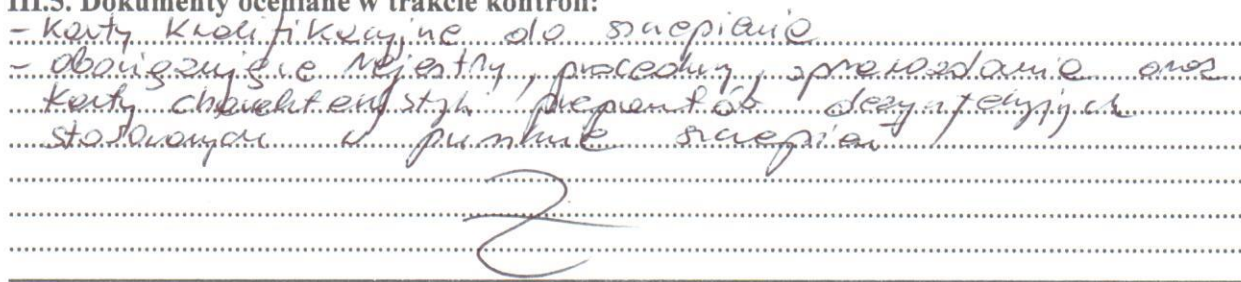 III.5. Dokumenty oceniane w trakcie kontroli:
- Karty kwalifikacyjne do szczepienia
- obowiązujące rejestry, procedury, sprawozdania oraz
karty charakterystyk preparatów dezynfekcyjnych
stosowanych w punkcie szczepień